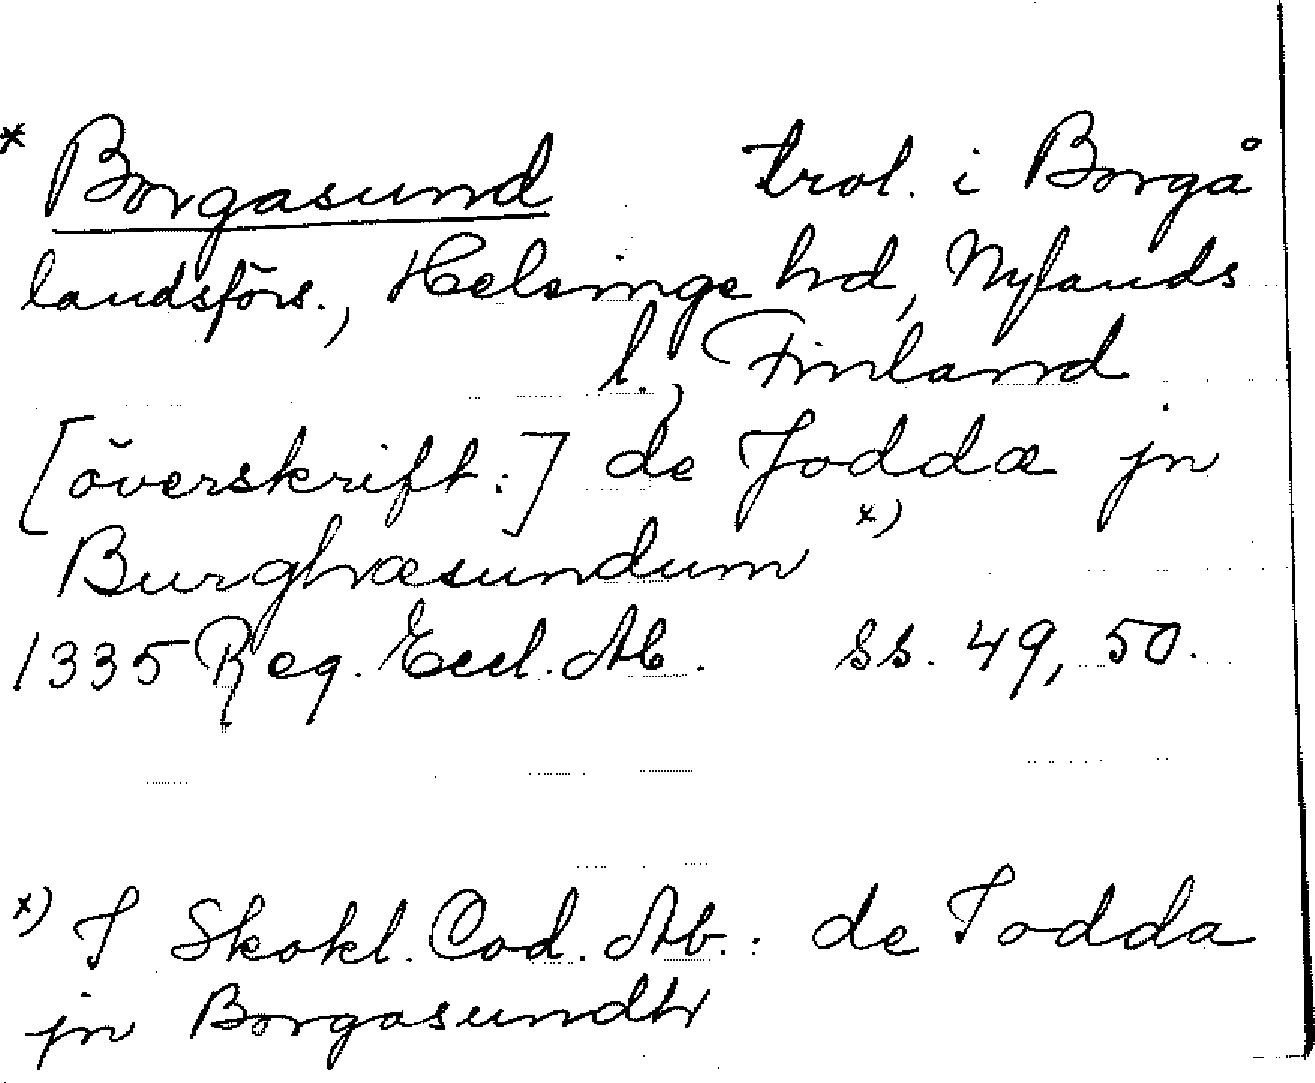 * Borgasund trol. i Borgå
landsförs., Helsinge hd, Nylands
l., Finland
[överskrift:] de Joddæ jn
Burghæsundum x)
1335 Reg. Eccl. Ab. ss. 49, 50.
x) I Skokl. Cod. Ab.: de Jodda
jn Borgasundh